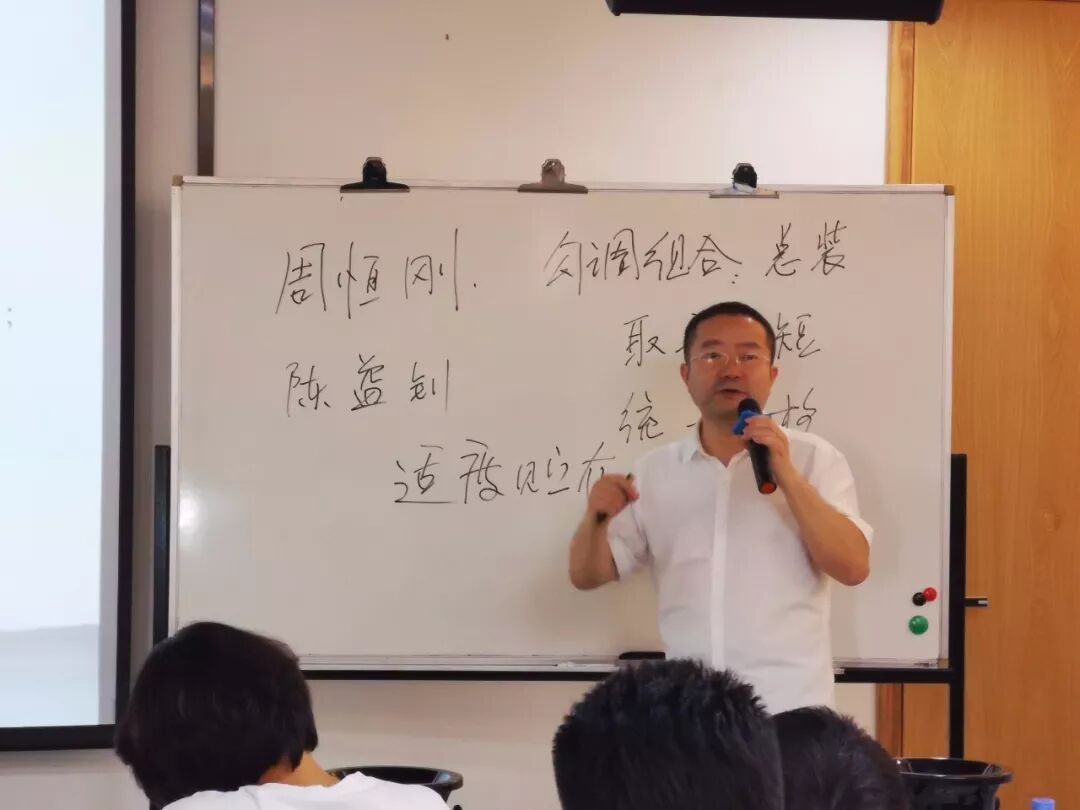 周恒刚. 勾调组合: 总装
取 短
陈益钊 统 格
适度贮存